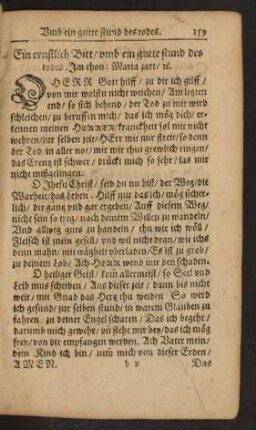 Vmb ein gutte stund des todes. 159
Ein ernstlich Bitt/ vmb ein gutte stund des
todes. Im thon: Maria zart/ ꝛc.
O HERR Gott hilff/ zu dir ich gilff/
von mir wolstu nicht weichen/ Am letzten
end/ so sich behend/ der Tod zu mir wird
schleichen/ zu beruffen mich/ das ich mög dich/ er-
kennen meinen HERREN/ kranckheit sol mir nicht
wehren/ zur selben zeit/ HErr mit mir streit/ so denn
der Tod in aller not/ mit mir thut grewlich ringen/
das Creutz ist schwer/ drückt mich so sehr/ las mir
nicht mißgelingen.
O Jhesu Christ/ seid du nu bist/ der Weg/ die
Warheit/ das leben. Hilff mir das ich/ mög sicher-
lich/ dir gantz vnd gar ergeben/ Auff diesem Weg/
nicht sein so treg/ nach deinem Willen zu wandeln/
Vnd allweg guts zu handeln/ thu wie ich wöll/
Fleisch ist mein gesell/ vnd wil nicht dran/ wie ichs
denn mahn/ mit nägheit vberladen. Es ist zu grob/
zu deinem Lob/ Ach HERR wend mir den schaden.
O heiliger Geist/ kom allermeist/ so Seel vnd
Leib mus scheiden/ Aus dieser zeit/ dann bis nicht
weit/ mit Gnad das Herz thu weiden So werd
ich gesund/ zur selben stund/ in warem Glauben zu
fahren. zu deiner Engel scharen/ Das ich begehr/
darumb mich gewehr/ vñ stehe mir bey/ das ich mög
frey/ von dir empfangen werden. Ach Vater mein/
dein Kind ich bin/ nim mich von dieser Erden/
AMEN. Das